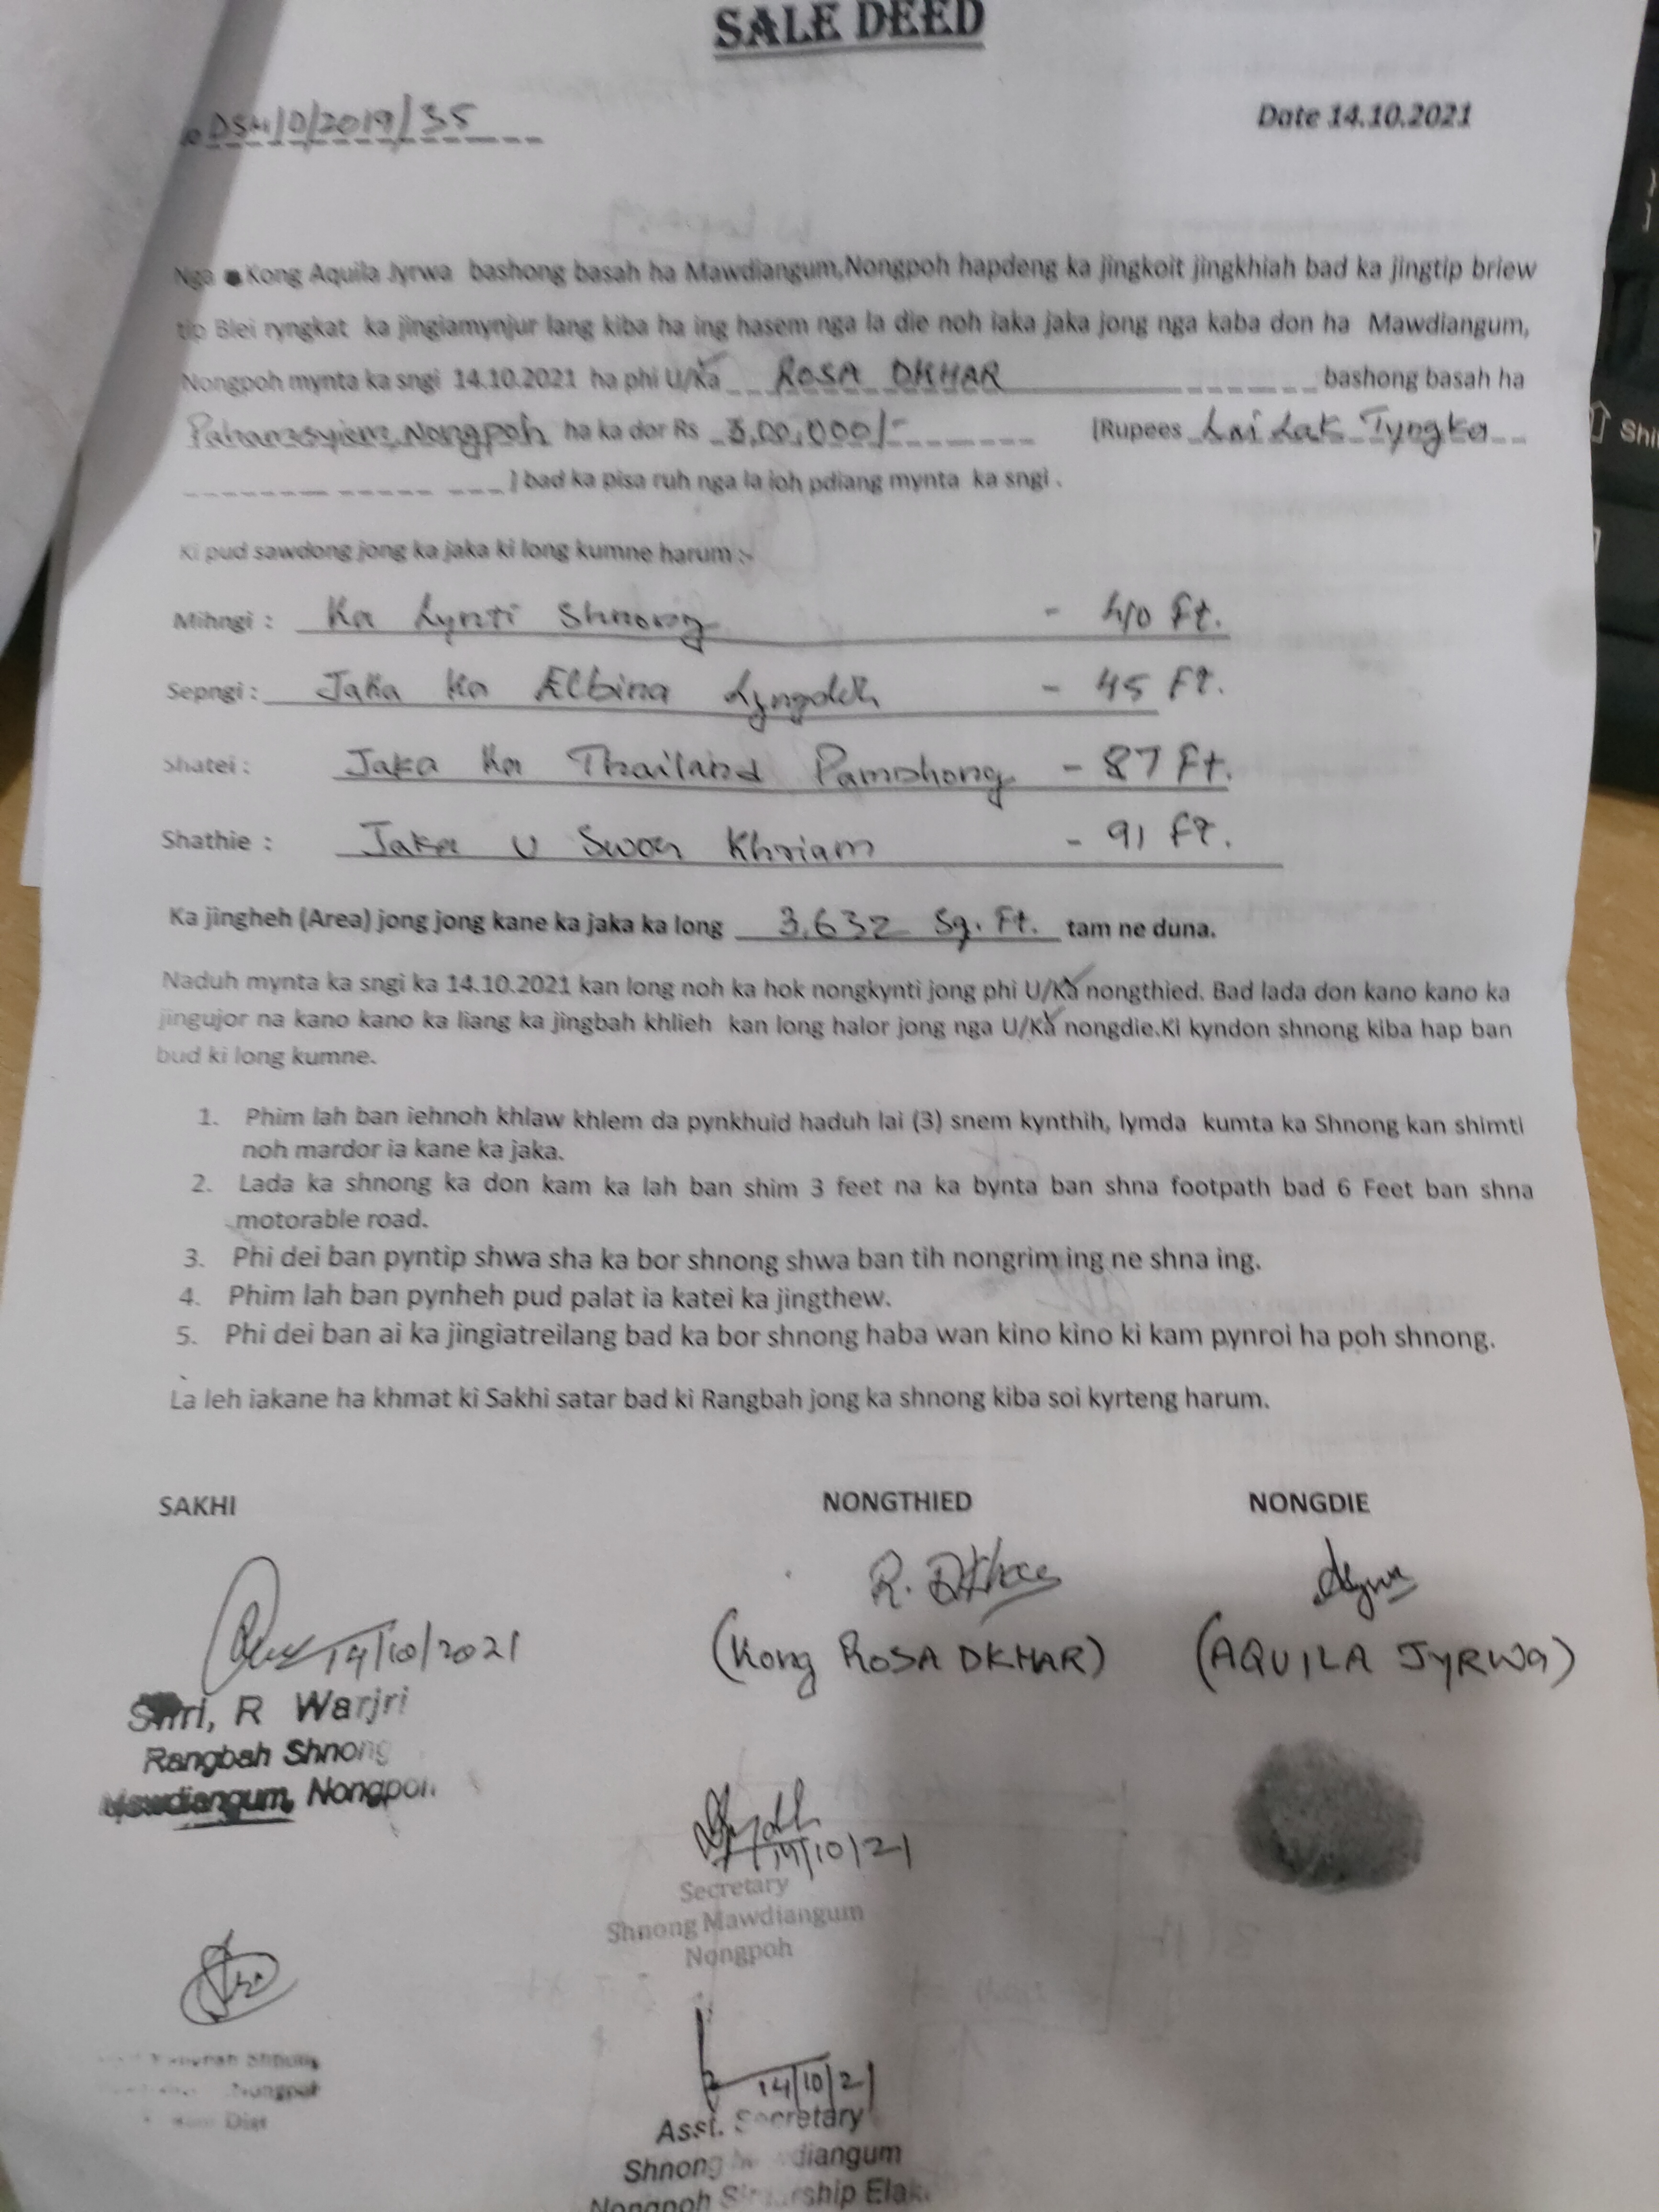 SALE DEED
DSM/D/2019/35 Date 14.10.2021
Nga Kong Aquila Jyrwa bashong basah ha Mawdiangum,Nongpoh hapdeng ka jingkoit jingkhiah bad ka jingtip briew
tip Blei ryngkat ka jingiamynjur lang kiba ha ing hasem nga la die noh iaka jaka jong nga kaba don ha Mawdiangum,
Nongpoh mynta ka sngi 14.10.2021 ha phi U/Ka ROSA DKHAR bashong basah ha
Pahamsyiem, Nongpoh ha ka dor Rs 3,00,000/- [Rupees Lai Lak Tyngka
] bad ka pisa ruh nga la ioh pdiang mynta ka sngi .
Ki pud sawdong jong ka jaka ki long kumne harum :-
Mihngi : Ka Lynti Shnong - 40 Ft.
Sepngi : Jaka Ka Elbina Lyngdoh - 45 Ft.
Shatei : Jaka Ka Thailand Pamshong - 87 Ft.
Shathie : Jaka U Khriam - 91 Ft.
Ka jingheh (Area) jong jong kane ka jaka ka long 3,632 Sq. Ft. tam ne duna.
Naduh mynta ka sngi ka 14.10.2021 kan long noh ka hok nongkynti jong phi U/Ka nongthied. Bad lada don kano kano ka
jingujor na kano kano ka liang ka jingbah khlieh kan long halor jong nga U/Ka nongdie.Ki kyndon shnong kiba hap ban
bud ki long kumne.
1. Phim lah ban iehnoh khlaw khlem da pynkhuid haduh lai (3) snem kynthih, lymda kumta ka Shnong kan shimti
noh mardor ia kane ka jaka.
2. Lada ka shnong ka don kam ka lah ban shim 3 feet na ka bynta ban shna footpath bad 6 Feet ban shna
motorable road.
3. Phi dei ban pyntip shwa sha ka bor shnong shwa ban tih nongrim ing ne shna ing.
4. Phim lah ban pynheh pud palat ia katei ka jingthew.
5. Phi dei ban ai ka jingiatreilang bad ka bor shnong haba wan kino kino ki kam pynroi ha poh shnong.
La leh iakane ha khmat ki Sakhi satar bad ki Rangbah jong ka shnong kiba soi kyrteng harum.
SAKHI NONGTHIED NONGDIE
R. Dkhar
14/10/2021 (Kong ROSA DKHAR) (AQUILA JYRWA)
Shri, R Warjri
Rangbah Shnong
Mawdiangum, Nongpoh
14/10/21
Secretary
Shnong Mawdiangum
Nongpoh
Shnong
Nongpoh
Dist
14/10/21
Asst. Secretary
Shnong Mawdiangum
Nongpoh Sirdarship Elaka
Shi